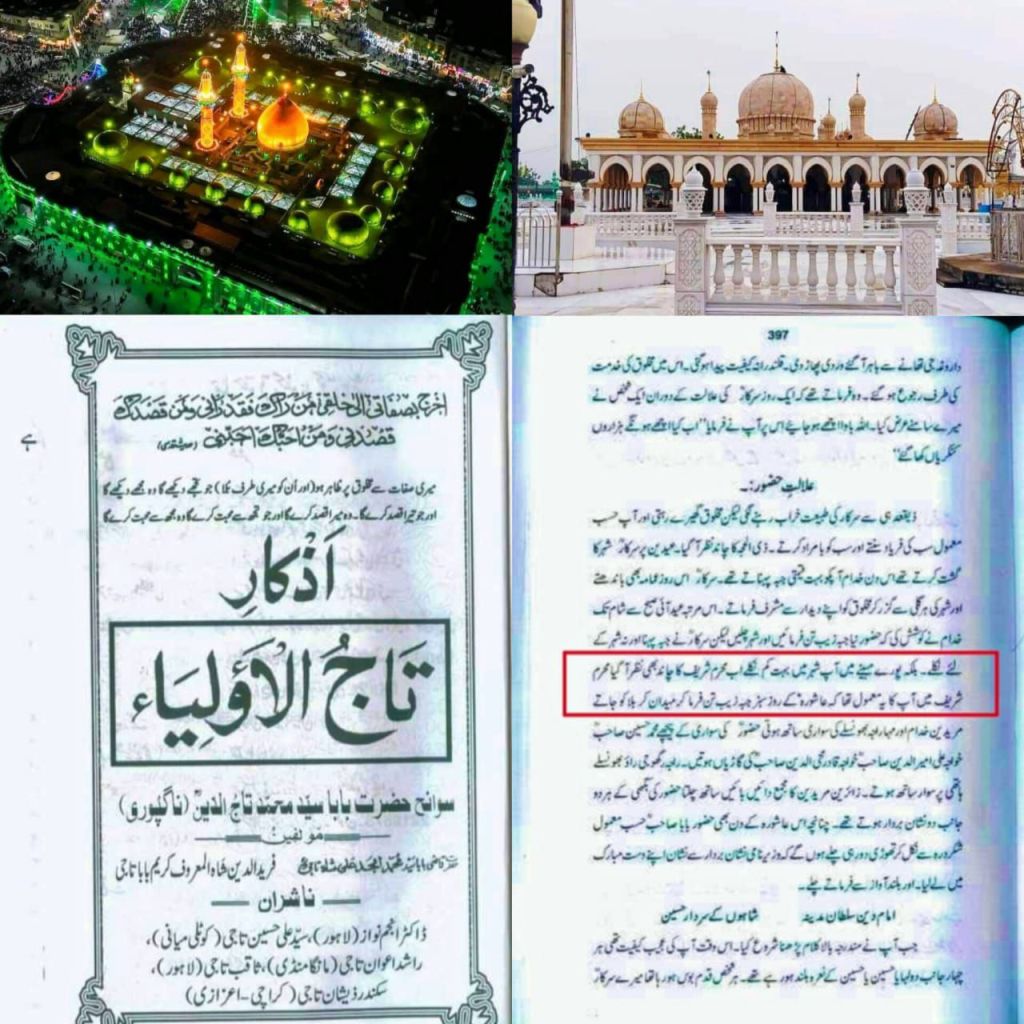 اخرج بصفاتی الی خلقی فمن راک فقد رانی ومن قصدک
قصدنی ومن احبک احبنی
ہے
میری صفات سے مخلوق پر ظاہر ہو (اور اُن کو میری طرف بلا) جو تجھے دیکھے گا وہ مجھے دیکھے گا
اور جو تیرا قصد کرے گا۔ وہ میرا قصد کرے گا اور جو تجھ سے محبت کرے گا وہ مجھ سے محبت کرے گا
اَذکارِ
تَاجُ الْاَوْلِیَاء
سوانح حضرت بابا سید محمد تاج الدینؒ (ناگپوری)
مؤلفین
فریدالدین شاہ المعروف کریم بابا تاجی
ناشران
ڈاکٹر انجم نواز (لاہور)، سید علی حسین تاجی (کوٹلی میانی)،
راشد اعوان تاجی (مانگا منڈی)، ثاقب تاجی (لاہور)،
سکندر ذیشان تاجی (کراچی - اعزازی)
397
داروغہ جی تھانے سے باہر آگئے وردی پھاڑ دی۔ قلندرانہ کیفیت پیدا ہوگئی۔ اس میں مخلوق کی خدمت
کی طرف رجوع ہو گئے۔ وہ فرماتے تھے کہ ایک روز سرکارؒ کی علالت کے دوران ایک شخص نے
میرے سامنے عرض کیا۔ اللہ باوا اچھے ہو جایئے اس پر آپ نے فرمایا "اب کیا اچھے ہونگے ہزاروں
کنکریاں کھا گئے"
علالتِ حضور:۔
ذیقعد ہی سے سرکار کی طبیعت خراب رہنے لگی لیکن مخلوق گھیرے رہتی اور آپ حسب
معمول سب کی فریاد سنتے اور سب کو بامراد کرتے۔ ذی الحجہ کا چاند نظر آ گیا۔ عیدین پر سرکارؒ شہر کا
گشت کرتے تھے اس دن خدام آپکو بہت قیمتی جبہ پہناتے تھے۔ سرکارؒ اس روز عمامہ بھی باندھتے
اور شہر کی ہر گلی سے گزر کر مخلوق کو اپنے دیدار سے مشرف فرماتے۔ اس مرتبہ عید آئی صبح سے شام تک
خدام نے کوشش کی کہ حضور نیا جبہ زیب تن فرمائیں اور شہر چلیں لیکن سرکارؒ نے جبہ پہنا اور نہ شہر کے
لئے نکلے۔ بلکہ پورے مہینے میں آپ شہر میں بہت کم نکلے اب محرم شریف کا چاند بھی نظر آ گیا محرم
شریف میں آپ کا یہ معمول تھا کہ عاشورہ کے روز سبز جبہ زیب تن فرما کر میدان کربلا کو جاتے
مریدین خدام اور مہاراجہ بھونسلے کی سواری ساتھ ہوتی حضورؒ کی سواری کے پیچھے محمد حسین صاحبؒ
خواجہ علی امیرالدین صاحبؒ خواجہ قادر محی الدین صاحبؒ کی گاڑیاں ہوتیں۔ راجہ رگھوجی راؤ بھونسلے
ہاتھی پر سوار ساتھ ہوتے۔ زائرین مریدین کا مجمع دائیں بائیں ساتھ چلتا حضور کی بگھی کے ہر دو
جانب دو نشان بردار ہوتے تھے۔ چنانچہ اس عاشورہ کے دن بھی حضور بابا صاحبؒ حسب معمول
شکردرہ سے نکل کر تھوڑی دور ہی چلے ہوں گے کہ وزیر نامی نشان بردار سے نشان اپنے دست مبارک
میں لے لیا۔ اور بلند آواز سے فرماتے چلے۔
امام دین سلطان مدینہ شاہوں کے سردار حسین
جب آپ نے مندرجہ بالا کلام پڑھنا شروع کیا۔ اس وقت آپ کی عجیب کیفیت تھی ہر
چہار جانب دولہا یا حسین یا حسین کے نعرہ بلند ہو رہے تھے۔ ہر شخص قدم بوس ہو رہا تھا میرے سرکارؒ